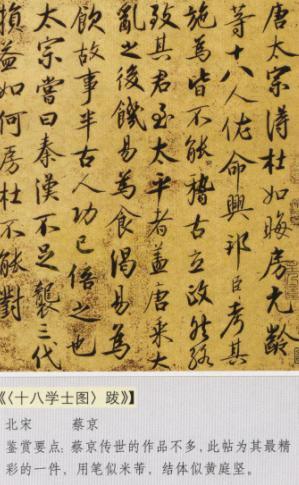 唐太宗得杜如晦房元齡
等十八人佐命興邦臣考其
施為皆不能稽古立政然终
致其君至太平者盖唐承大
亂之後饑易為食渴易為
飲故事半古人功已倍之也
太宗嘗曰秦漢不足襲三代
損益如何房杜不能對
《〈十八学士图〉跋》】
北宋 蔡京
鉴赏要点：蔡京传世的作品不多，此帖为其最精
彩的一件，用笔似米芾，结体似黄庭坚。